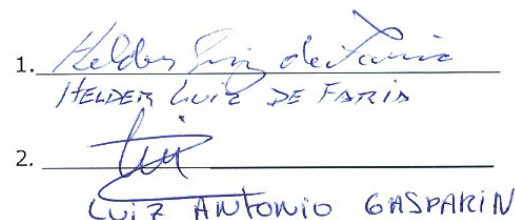 1. Helder Luiz de Faria
HELDER LUIZ DE FARIA
2. Luiz
LUIZ ANTONIO GASPARIN